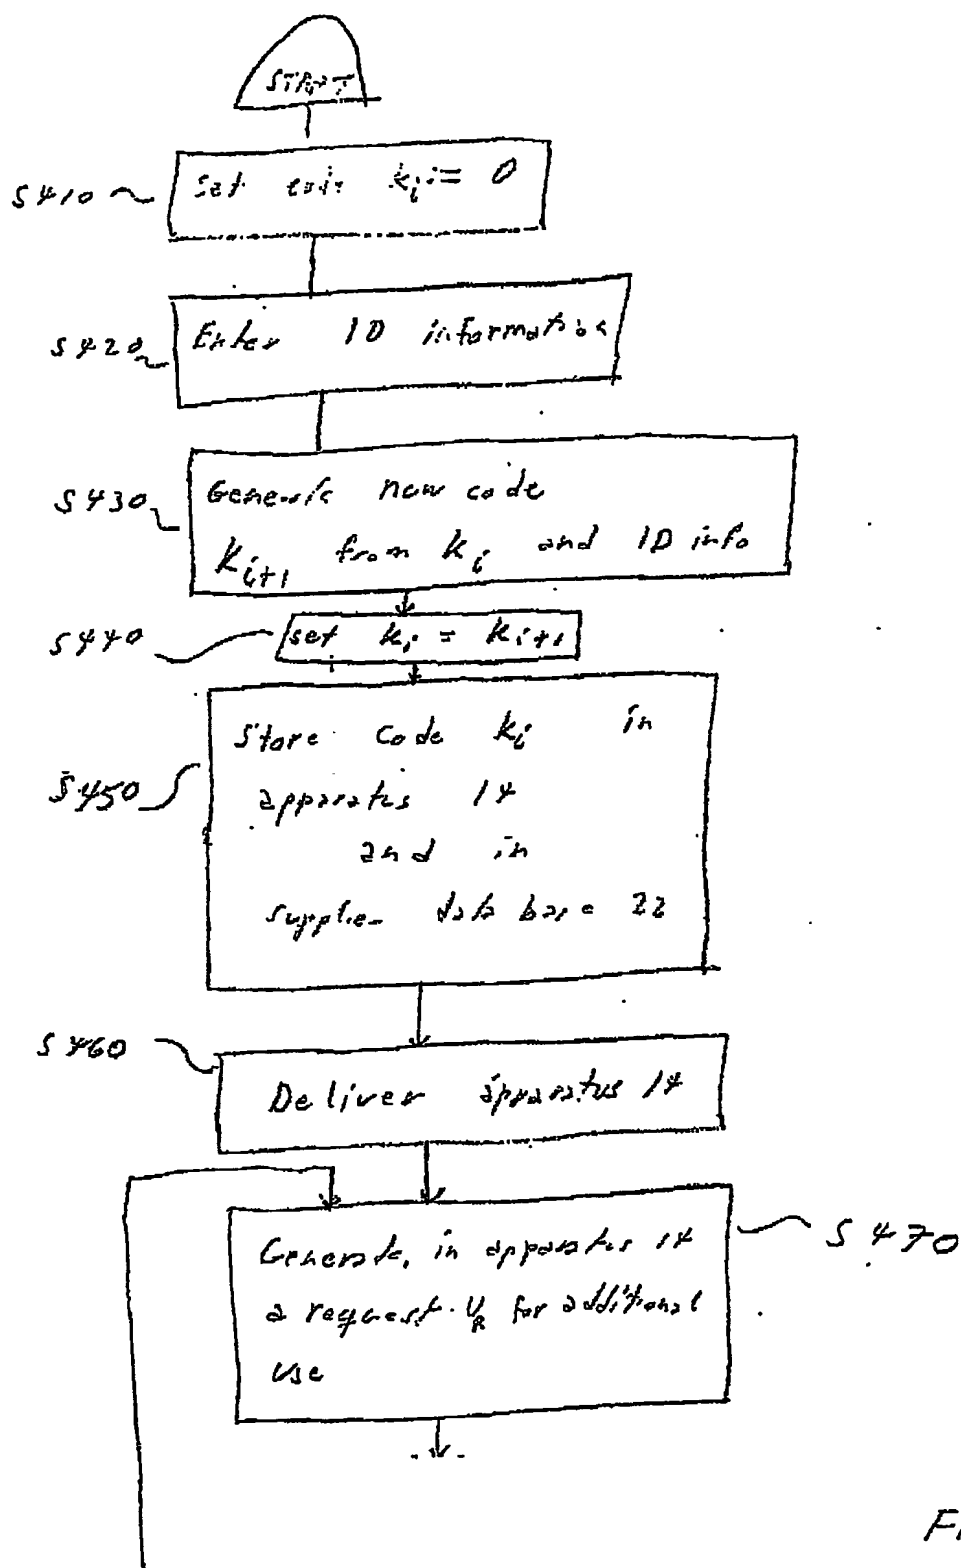 START
S410
Set code k_i = 0
S420
Enter ID information
S430
Generate new code
K_{i+1} from k_i and ID info
S440
set k_i = k_{i+1}
S450
Store code k_i in
apparatus 14
and in
supplier data base 22
S460
Deliver apparatus 14
S470
Generate, in apparatus 14
a request U_R for additional
use